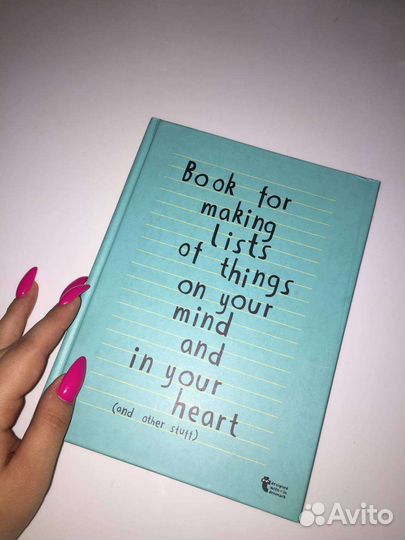 Book for
making
lists
of things
on your
mind
and
in your
heart
(and other stuff)
designed
with ♥ in
denmark
Avito